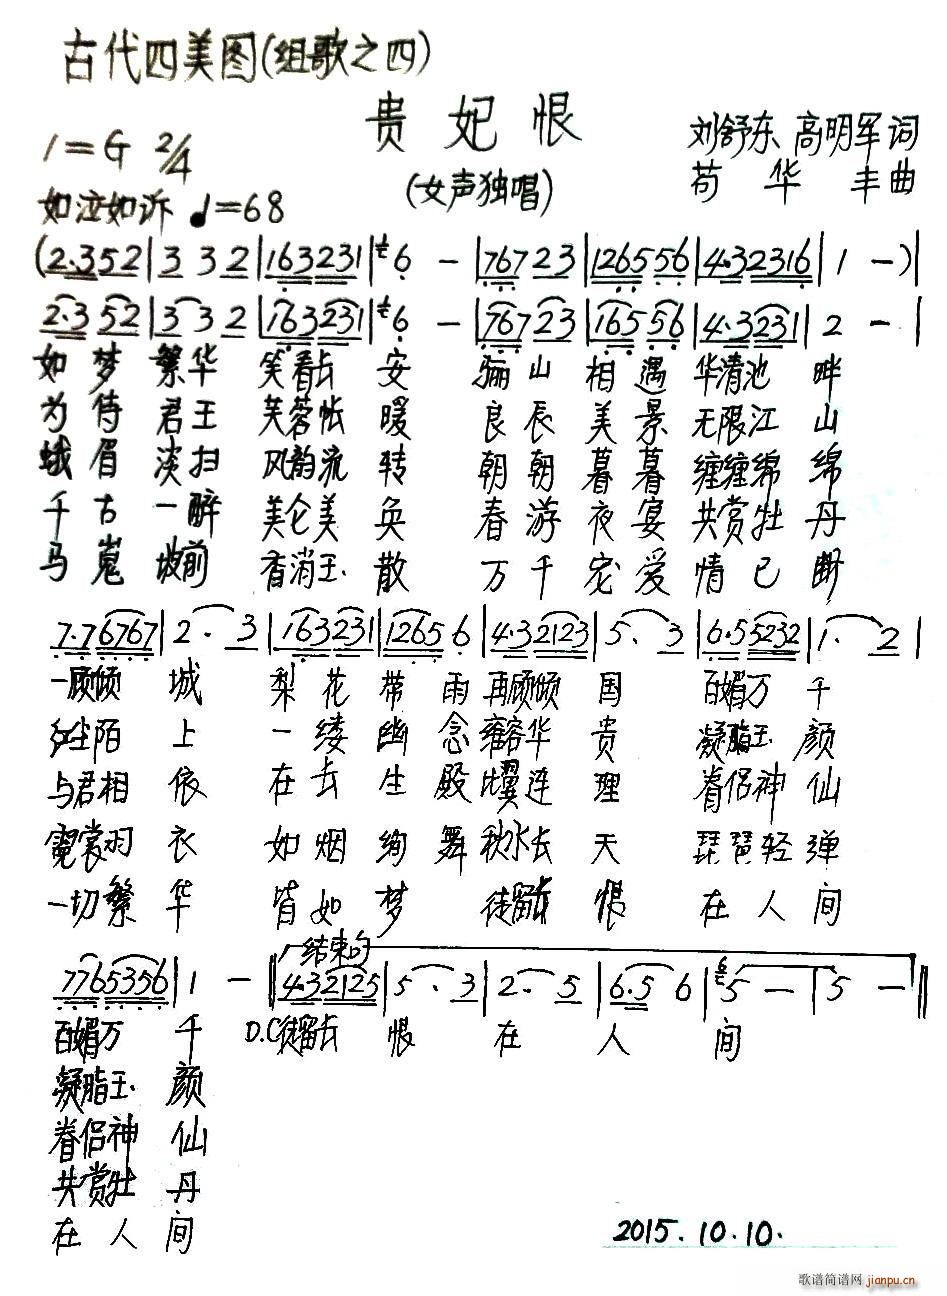 古代四美图(组歌之四)
贵妃恨
1=G 2/4
刘舒东 高明军 词
苟华丰曲
(女声独唱)
如泣如诉 ♩=68
(2·352|332|163231|6 -|76723|126556|4·32316|1 -)|
2·352|332|163231|6 -|76723|165556|4·3231|2 -|
如梦繁华 笑看长安 骊山相遇 华清池畔
为侍君王 芙蓉帐暖 良辰美景 无限江山
蛾眉淡扫 风韵流转 朝朝暮暮 缠缠绵绵
千古一醉 美仑美奂 春游夜宴 共赏牡丹
马嵬坡前 香消玉散 万千宠爱 情已断
7·76767|2· 3|163231|12656|4·32123|5· 3|6·55232|1· 2|
一顾倾城 梨花带雨 再顾倾国 百媚万千
红尘陌上 一缕幽念 雍容华贵 凝脂玉颜
与君相依 在长生殿 比翼连理 眷侣神仙
霓裳羽衣 如烟绚舞 秋水长天 琵琶轻弹
一切繁华 皆如梦 徒留长恨 在人间
结束的
7765356|1 -‖4·32125|5· 3|2· 5|6·5 6|5 -|5 -‖
百媚万千 D.C. 徒留长恨在人间
凝脂玉颜
眷侣神仙
共赏牡丹
在人间
2015.10.10.
歌谱简谱网 jianpu.cn